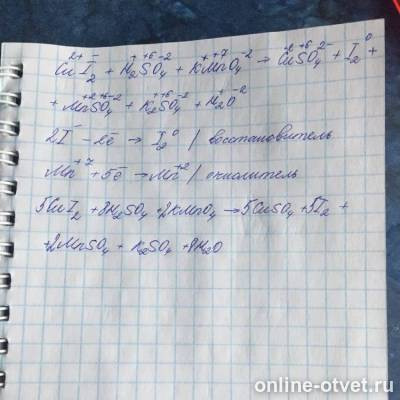 Cu⁺²I₂⁻ + H₂⁺S⁺⁶O₄⁻² + K⁺Mn⁺⁷O₄⁻² → Cu⁺²S⁺⁶O₄²⁻ + I₂⁰ +
+ Mn⁺²S⁺⁶O₄⁻² + K₂⁺S⁺⁶O₄⁻² + H₂⁺O⁻²
2I⁻ - 2ē → I₂⁰ / восстановитель
Mn⁺⁷ + 5ē → Mn⁺² / окислитель
5CuI₂ + 8H₂SO₄ + 2KMnO₄ → 5CuSO₄ + 5I₂ +
+2MnSO₄ + K₂SO₄ + 8H₂O
online-otvet.ru